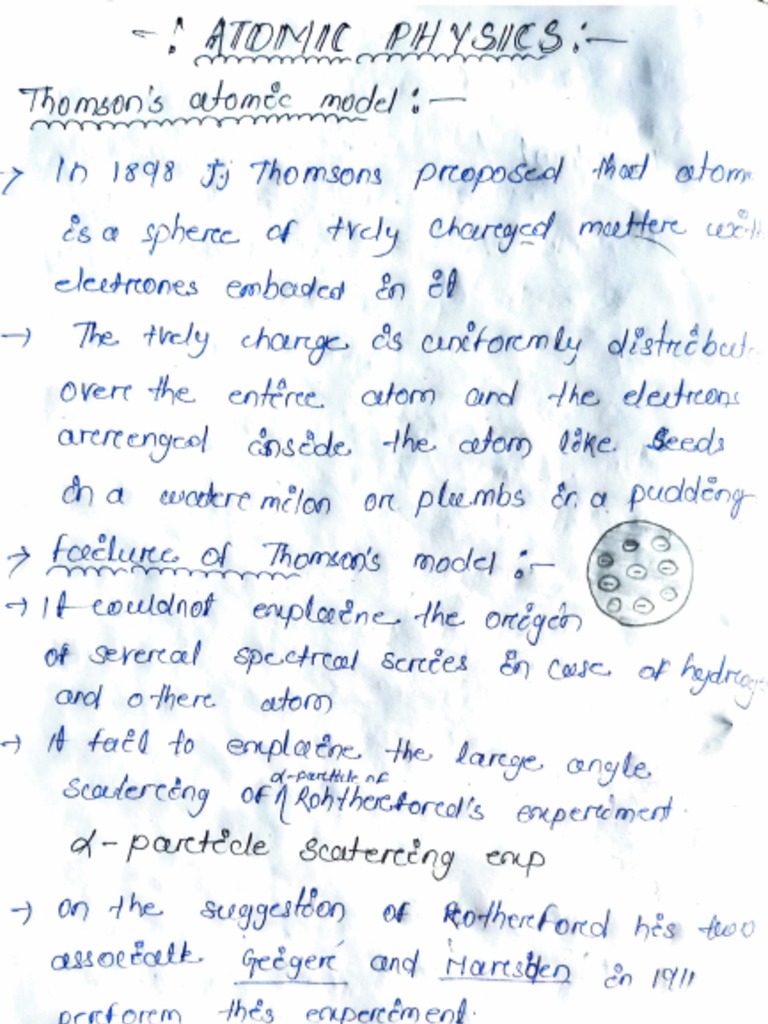 -: ATOMIC PHYSICS:-
Thomson's atomic model :-
→ In 1898 Jj Thomsons proposed that atom
is a sphere of +vely charged mattere with
electrones embaded in it
→ The +vely charge is uniformly distribut
overe the entire atom and the electrons
arerenged inside the atom like Seeds
in a watere milon or plumbs in a pudding
→ failure of Thomson's model :-
→ It couldnot explaine the origin
of several spectral series in case of hydroge
and othere atom
→ It fail to explaine the large angle
α-particle of
scatering of Rohthereforcd's experiment.
α-particle scatering exp
→ on the suggestion of Rotherefored his two
associatt Geiger and Marsden in 1911
perform this experiment.